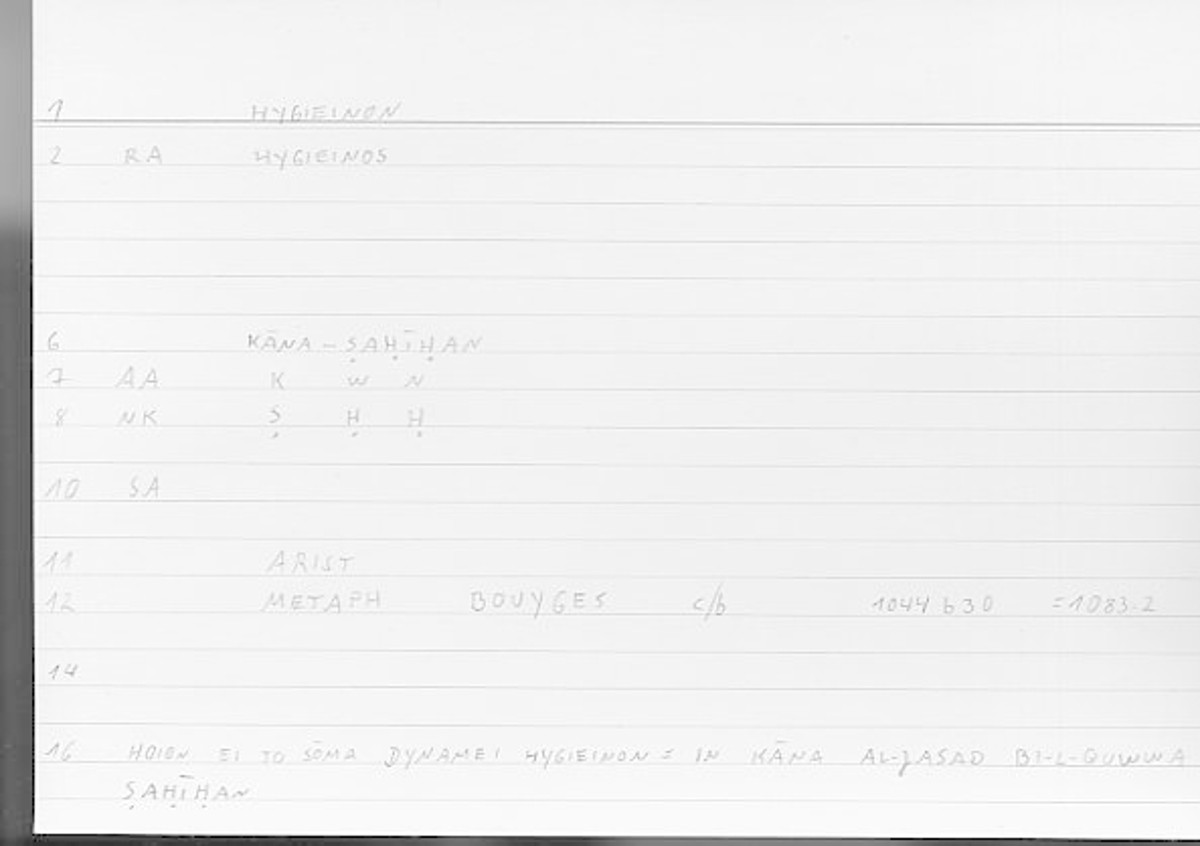 1 HYGIEINON
2 RA HYGIEINOS
6 KĀNA – ṢAḤĪḤAN
7 AA K W N
8 NK Ṣ Ḥ Ḥ
10 SA
11 ARIST
12 METAPH BOUYGES c/b 1044 b 30 =1083.2
14
16 HOION EI TO SŌMA DYNAMEI HYGIEINON = IN KĀNA AL-JASAD BI-L-QUWWA
ṢAḤĪḤAN